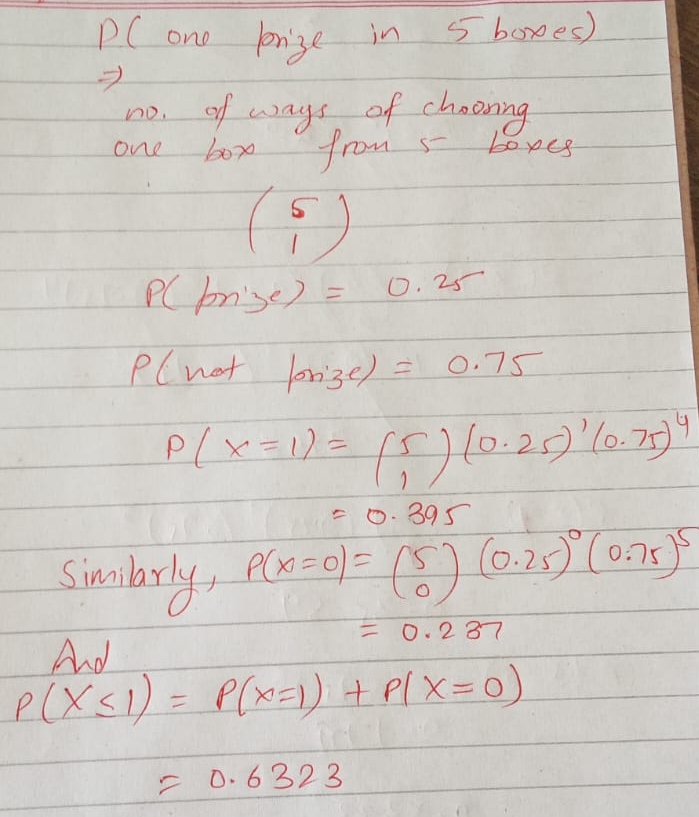 P( one prize in 5 boxes)
⇒
no. of ways of choosing
one box from 5 boxes
(5
1)
P( prize) = 0.25
P( not prize) = 0.75
P( x = 1) = (5
1) (0.25)¹ (0.75)⁴
= 0.395
Similarly, P(x=0) = (5
0) (0.25)⁰ (0.75)⁵
= 0.237
And
P(X ≤ 1) = P(x=1) + P( X = 0)
= 0.6323